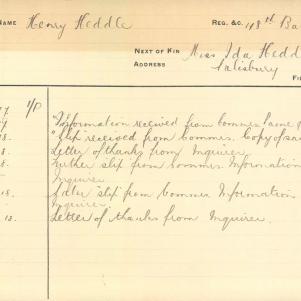 NAME Henry Heddle REG. &C. 48th Ba
NEXT OF KIN Miss Ida Hedd
ADDRESS Salisbury
FI
"Information received from Commrs. same
"Slip received from Commrs. Copy of sa
18. Letter of thanks from Inquirer.
Further slip from Commrs Information
Inquirer
18. Later slip from Commrs Information
Inquirer.
18. Letter of thanks from Inquirer.